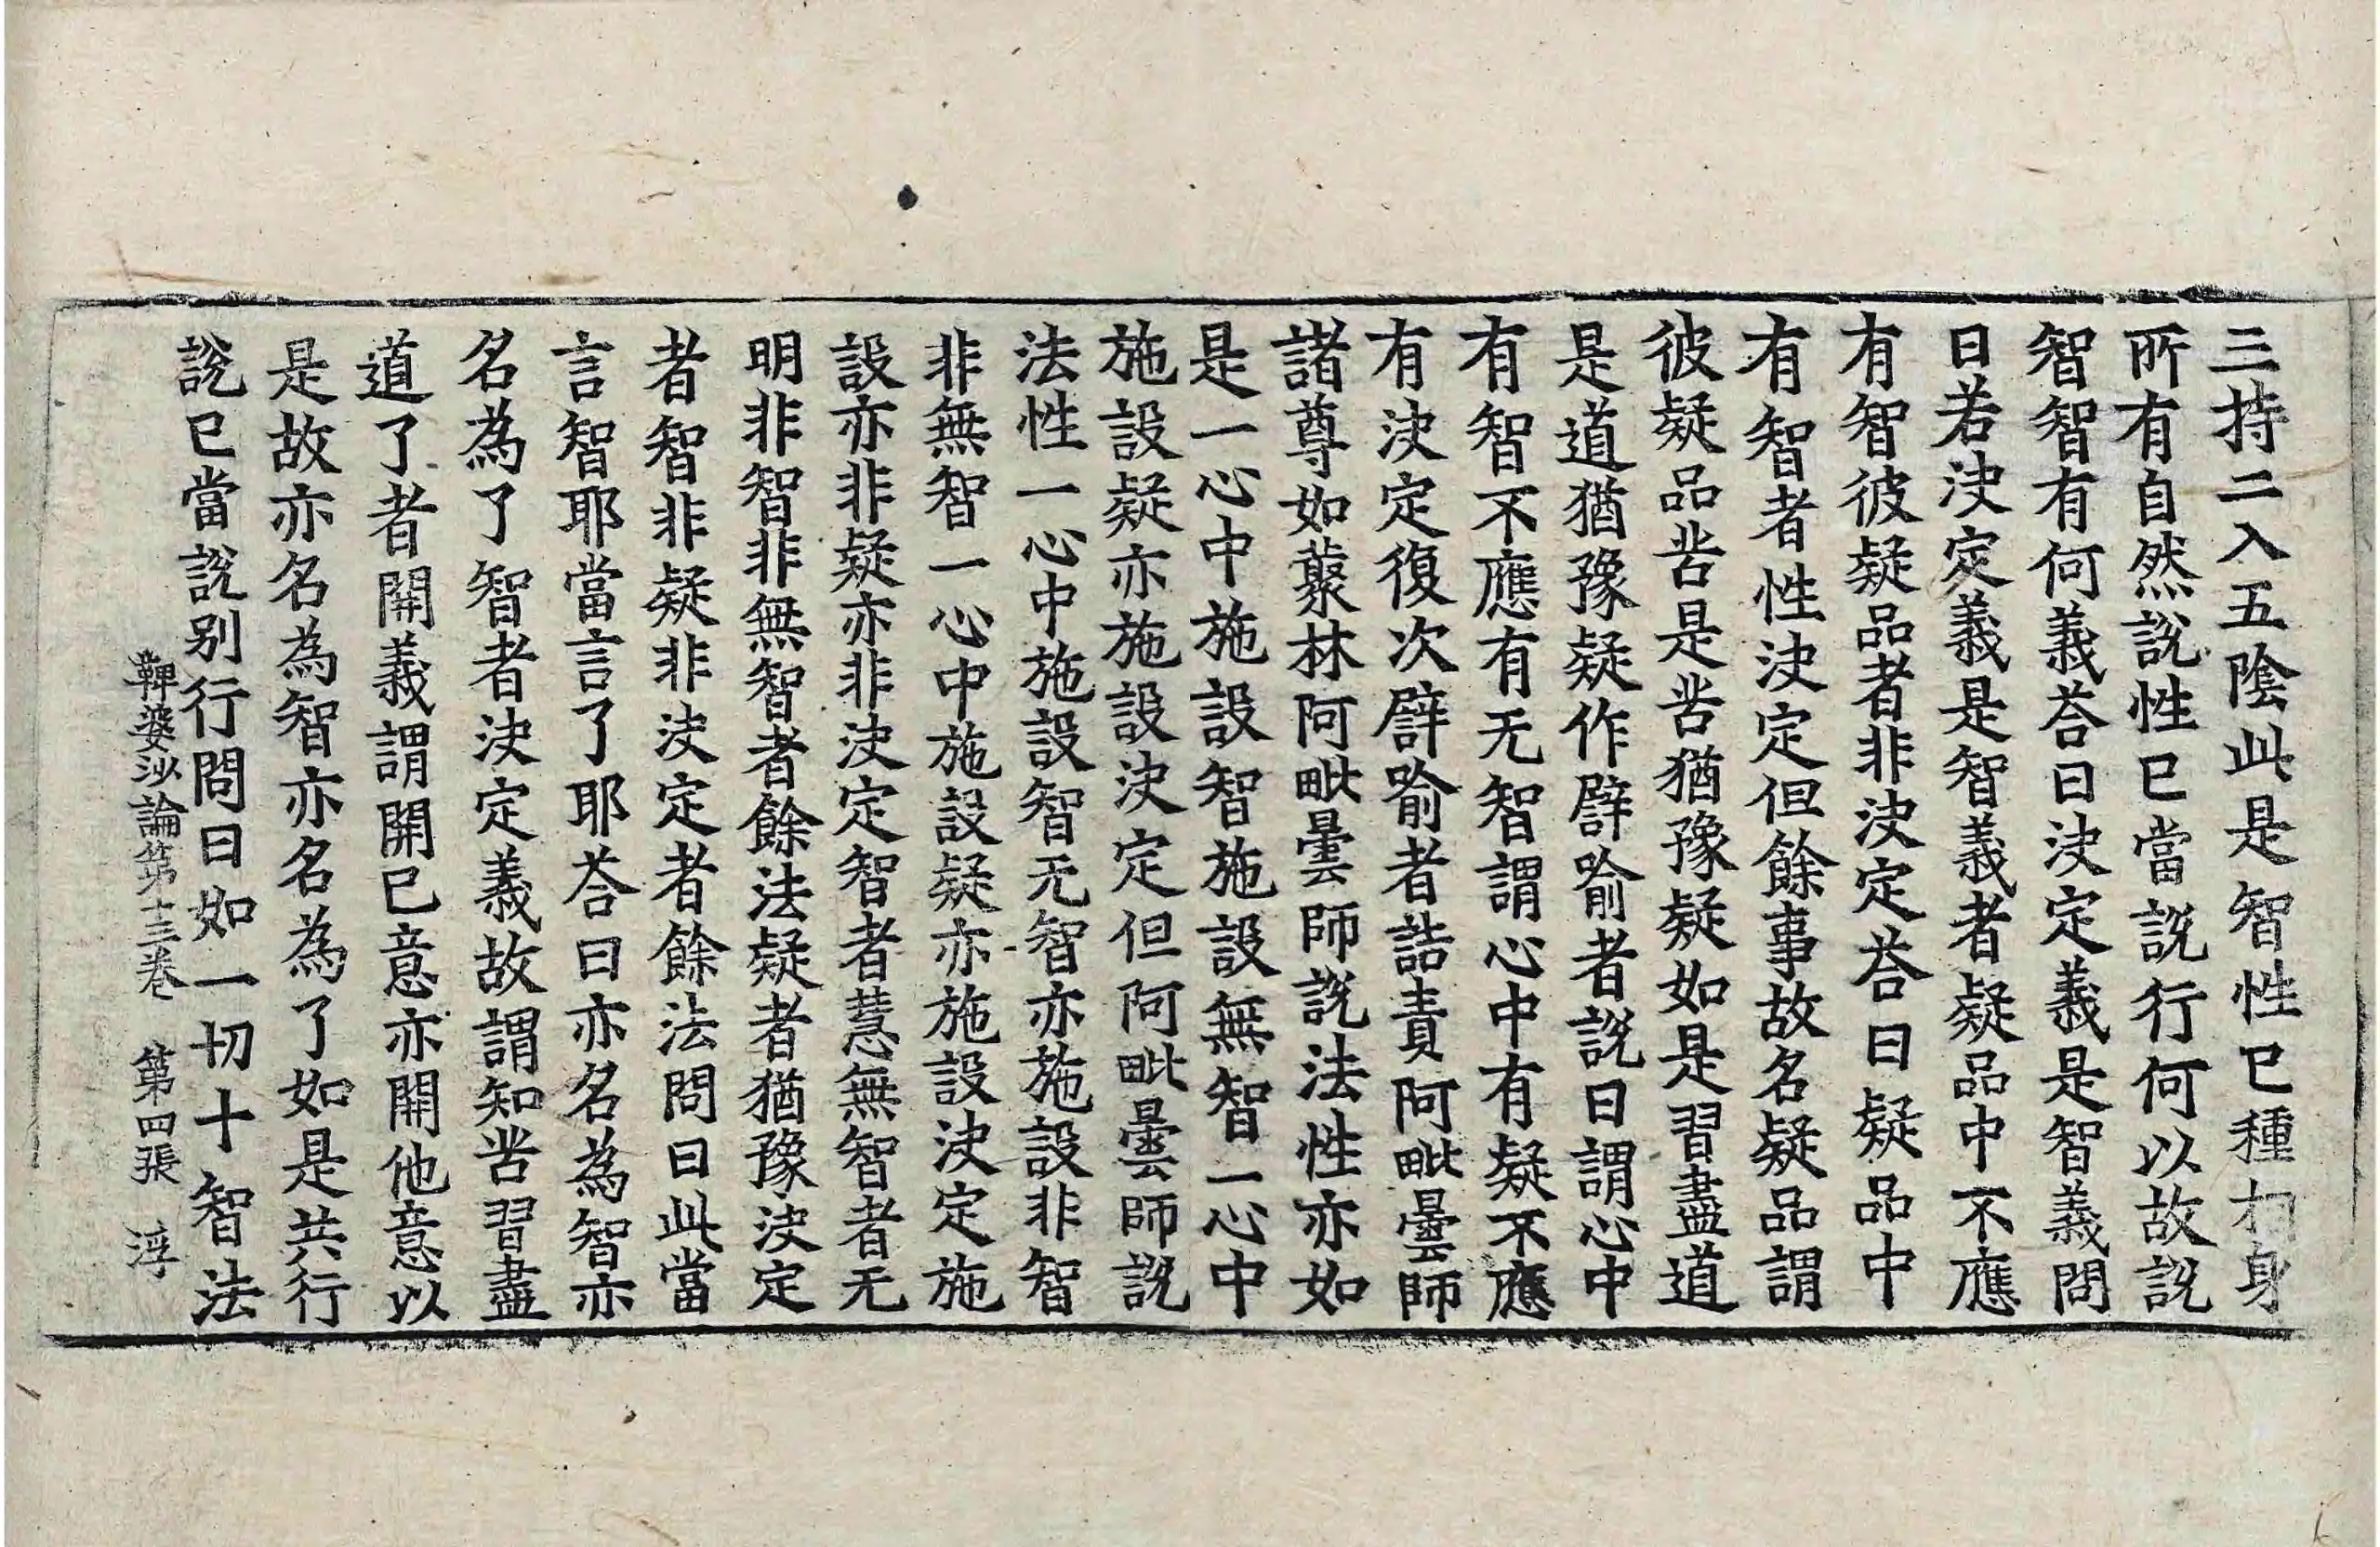 三持二入五陰此是智性已種相身
所有自然說性已當說行何以故說
智智有何義荅曰决定義是智義問
曰若决定義是智義者疑品中不應
有智彼疑品者非决定荅曰疑品中
有智者性决定但餘事故名疑品謂
彼疑品苦是苦猶豫疑如是習盡道
是道猶豫疑作譬喻者說曰謂心中
有智不應有无智謂心中有疑不應
有决定復次譬喻者誥責阿毗曇師
諸尊如藂林阿毗曇師說法性亦如
是一心中施設智施設無智一心中
施設疑亦施設决定但阿毗曇師說
法性一心中施設智无智亦施設非智
非無智一心中施設疑亦施設决定施
設亦非疑亦非决定智者慧無智者无
明非智非無智者餘法疑者猶豫决定
者智非疑非决定者餘法問曰此當
言智耶當言了耶荅曰亦名為智亦
名為了智者决定義故謂知苦習盡
道了者開義謂開已意亦開他意以
是故亦名為智亦名為了如是共行
說已當說別行問曰如一切十智法
鞞婆沙論第十三卷　第四張　浮